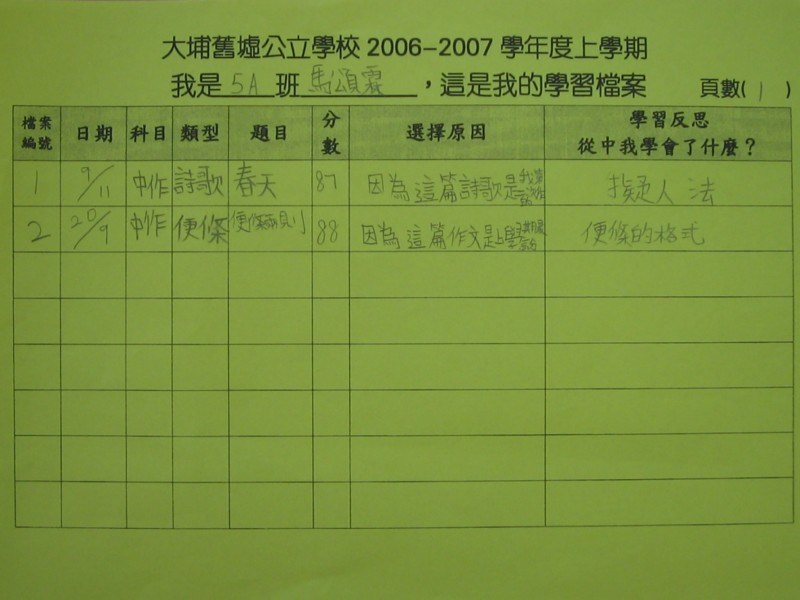 大埔舊墟公立學校 2006-2007 學年度上學期
我是 5A 班 馬頌霖 ，這是我的學習檔案 頁數( 1 )
檔案編號 日期 科目 類型 題目 分數 選擇原因 學習反思 從中我學會了什麼？
1 9/11 中作 詩歌 春天 87 因為這篇詩歌是我第 擬人法
2 20/9 中作 便條 便條兩則 88 因為這篇作文是上學期最 便條的格式